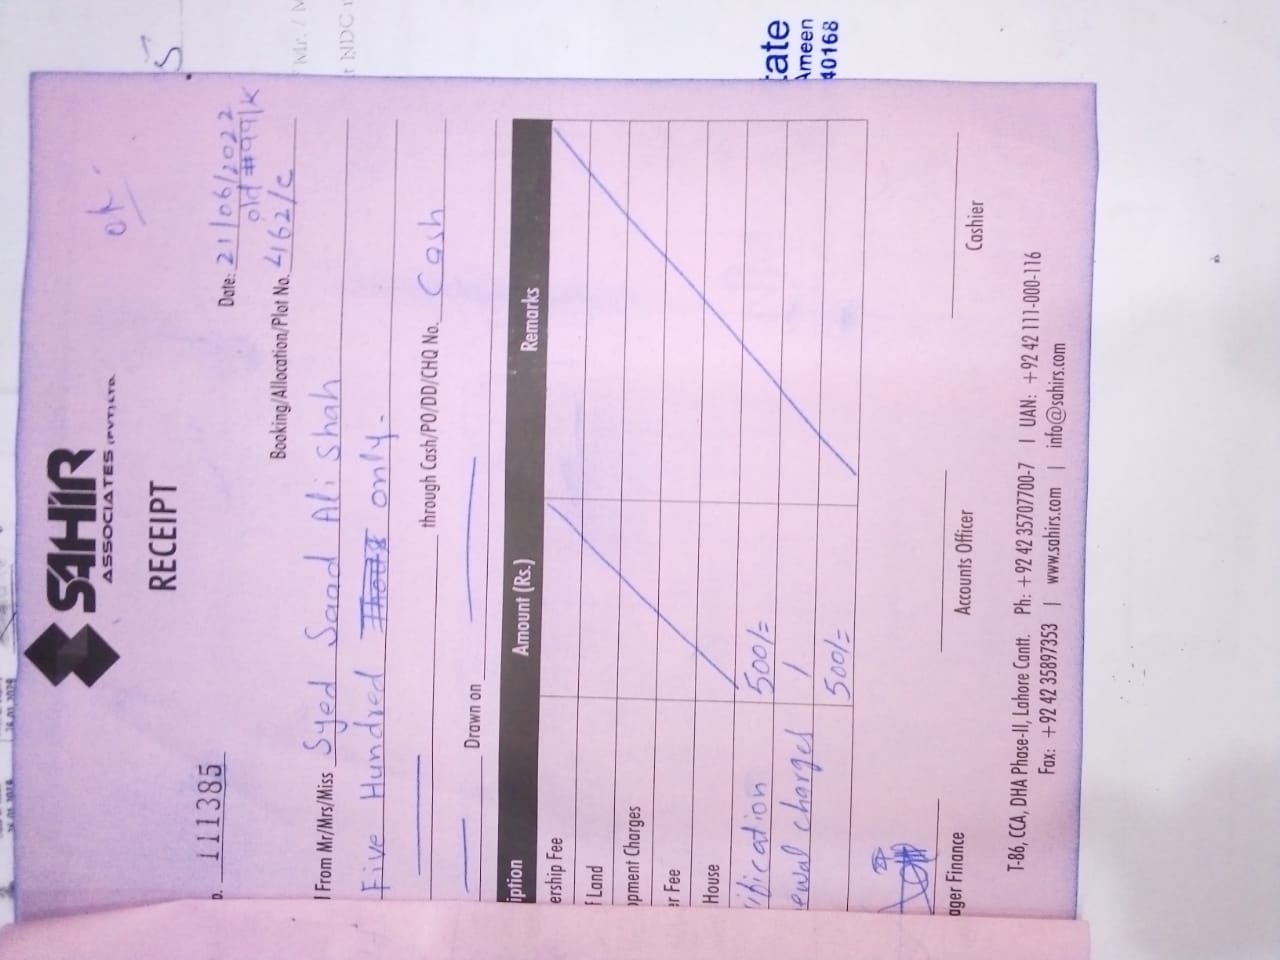 SAHIR
ASSOCIATES (PVT) LTD.
RECEIPT
111385
Date: 21/06/2022
old #99/K
Booking/Allocation/Plot No. 4162/C
From Mr/Mrs/Miss Syed Saad Ali Shah
Five Hundred only.
through Cash/PO/DD/CHQ No. Cash
Drawn on
iption Amount (Rs.) Remarks
ership Fee
f Land
opment Charges
er Fee
House
ification 500/=
ewal charges /
500/=
ager Finance Accounts Officer Cashier
T-86, CCA, DHA Phase-II, Lahore Cantt. Ph: +92 42 35707700-7 I UAN: +92 42 111-000-116
Fax: +92 42 35897353 | www.sahirs.com | info@sahirs.com
ok
Mr. / M
t NDC
tate
Ameen
40168